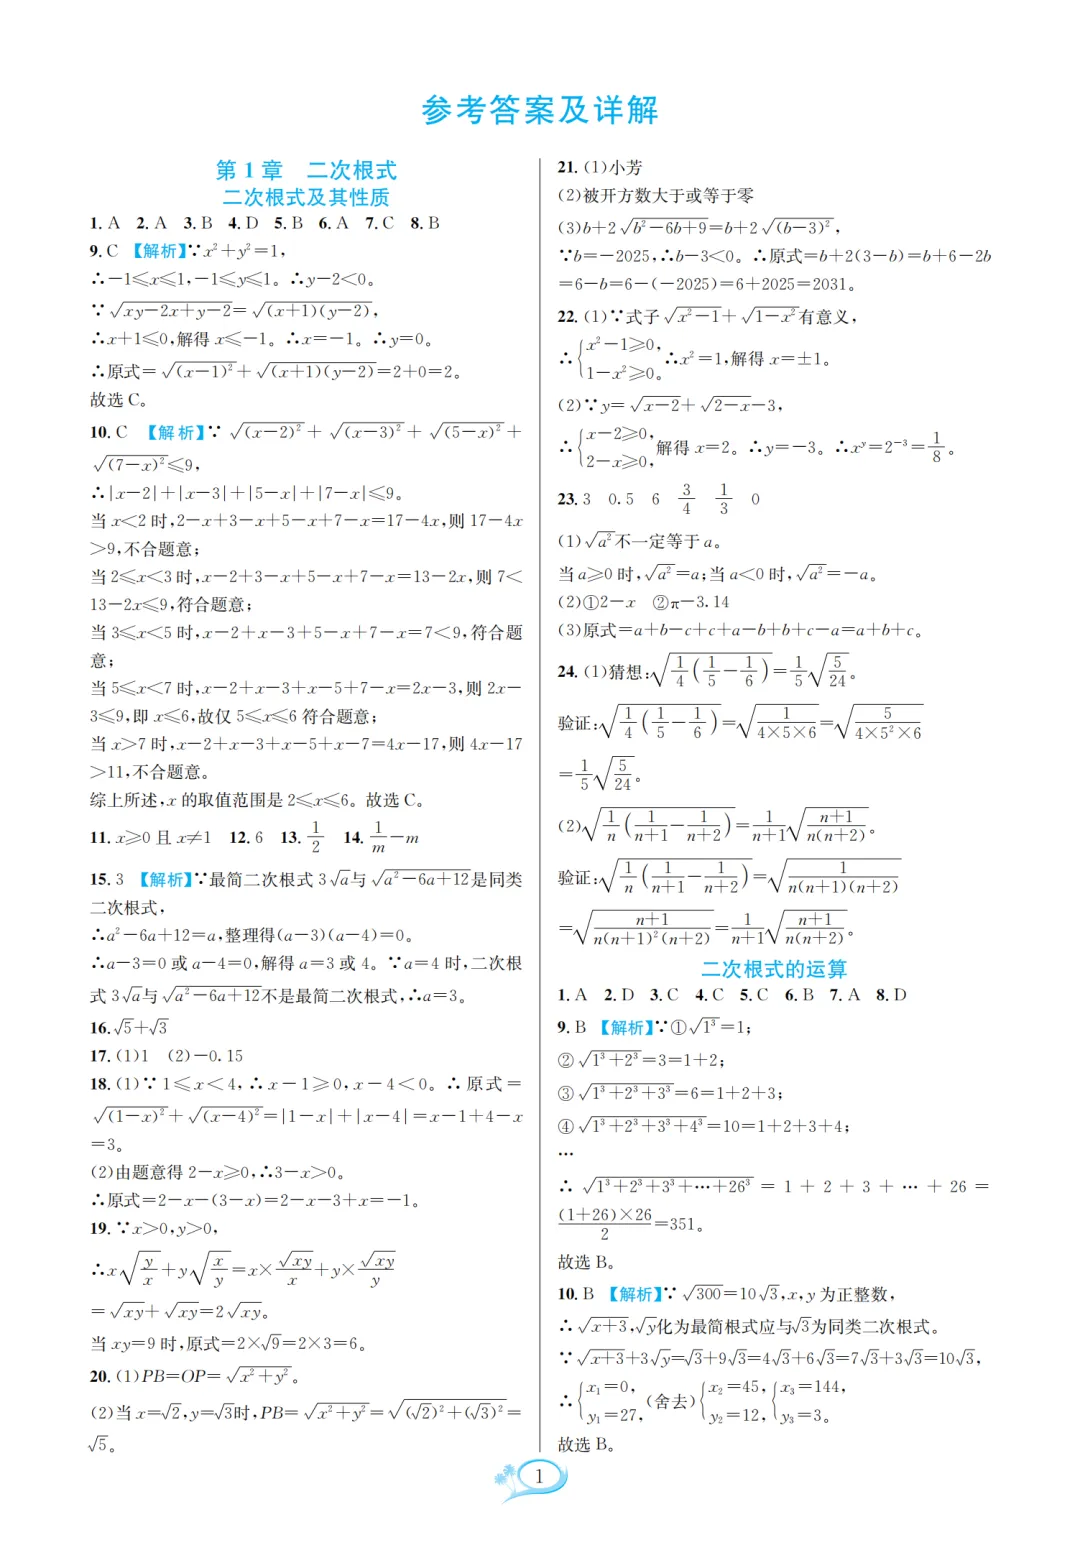 参考答案及详解
第 1 章　二次根式
二次根式及其性质
1. A　2. A　3. B　4. D　5. B　6. A　7. C　8. B
9. C　【解析】∵x²+y²=1,
∴-1≤x≤1,-1≤y≤1。∴y-2<0。
∵√(xy-2x+y-2)=√((x+1)(y-2)),
∴x+1≤0,解得 x≤-1。∴x=-1。∴y=0。
∴原式=√((x-1)²)+√((x+1)(y-2))=2+0=2。
故选 C。
10. C　【解析】∵ √((x-2)²) + √((x-3)²) + √((5-x)²) +
√((7-x)²)≤9,
∴|x-2|+|x-3|+|5-x|+|7-x|≤9。
当 x<2 时,2-x+3-x+5-x+7-x=17-4x,则 17-4x
>9,不合题意;
当 2≤x<3 时,x-2+3-x+5-x+7-x=13-2x,则 7<
13-2x≤9,符合题意;
当 3≤x<5 时,x-2+x-3+5-x+7-x=7<9,符合题
意;
当 5≤x<7 时,x-2+x-3+x-5+7-x=2x-3,则 2x-
3≤9,即 x≤6,故仅 5≤x≤6 符合题意;
当 x>7 时,x-2+x-3+x-5+x-7=4x-17,则 4x-17
>11,不合题意。
综上所述,x 的取值范围是 2≤x≤6。故选 C。
11. x≥0 且 x≠1　12. 6　13. 1/2　14. 1/m-m
15. 3　【解析】∵最简二次根式 3√a与 √(a²-6a+12)是同类
二次根式,
∴a²-6a+12=a,整理得(a-3)(a-4)=0。
∴a-3=0 或 a-4=0,解得 a=3 或 4。∵a=4 时,二次根
式 3√a与 √(a²-6a+12)不是最简二次根式,∴a=3。
16. √5+√3
17. (1)1　(2)-0.15
18. (1)∵ 1≤x<4,∴x-1≥0,x-4<0。∴原式=
√((1-x)²)+√((x-4)²)=|1-x|+|x-4|=x-1+4-x
=3。
(2)由题意得 2-x≥0,∴3-x>0。
∴原式=2-x-(3-x)=2-x-3+x=-1。
19. ∵x>0,y>0,
∴x√(y/x)+y√(x/y)=x×√(xy)/x+y×√(xy)/y
=√(xy)+√(xy)=2√(xy)。
当 xy=9 时,原式=2×√9=2×3=6。
20. (1)PB=OP=√(x²+y²)。
(2)当 x=√2,y=√3时,PB=√(x²+y²)=√((√2)²+(√3)²)=
√5。
21. (1)小芳
(2)被开方数大于或等于零
(3)b+2√(b²-6b+9)=b+2√((b-3)²),
∵b=-2025,∴b-3<0。∴原式=b+2(3-b)=b+6-2b
=6-b=6-(-2025)=6+2025=2031。
22. (1)∵式子√(x²-1)+√(1-x²)有意义,
∴{x²-1≥0, 1-x²≥0。 ∴x²=1,解得 x=±1。
(2)∵y=√(x-2)+√(2-x)-3,
∴{x-2≥0, 2-x≥0, 解得 x=2。∴y=-3。∴xʸ=2⁻³=1/8。
23. 3　0.5　6　3/4　1/3　0
(1)√(a²)不一定等于 a。
当 a≥0 时,√(a²)=a;当 a<0 时,√(a²)=-a。
(2)①2-x　②π-3.14
(3)原式=a+b-c+c+a-b+b+c-a=a+b+c。
24. (1)猜想:√(1/4(1/5-1/6))=1/5√(5/24)。
验证:√(1/4(1/5-1/6))=√(1/(4×5×6))=√(5/(4×5²×6))
=1/5√(5/24)。
(2)√(1/n(1/(n+1)-1/(n+2)))=1/(n+1)√((n+1)/(n(n+2)))。
验证:√(1/n(1/(n+1)-1/(n+2)))=√(1/(n(n+1)(n+2)))
=√((n+1)/(n(n+1)²(n+2)))=1/(n+1)√((n+1)/(n(n+2)))。
二次根式的运算
1. A　2. D　3. C　4. C　5. C　6. B　7. A　8. D
9. B　【解析】∵①√(1³)=1;
②√(1³+2³)=3=1+2;
③√(1³+2³+3³)=6=1+2+3;
④√(1³+2³+3³+4³)=10=1+2+3+4;
…
∴ √(1³+2³+3³+…+26³) = 1 + 2 + 3 + … + 26 =
(1+26)×26/2=351。
故选 B。
10. B　【解析】∵√300=10√3,x,y 为正整数,
∴√(x+3),√y化为最简根式应与√3为同类二次根式。
∵√(x+3)+3√y=√3+9√3=4√3+6√3=7√3+3√3=10√3,
∴{x₁=0, y₁=27,(舍去){x₂=45, y₂=12,{x₃=144, y₃=3。
故选 B。
1